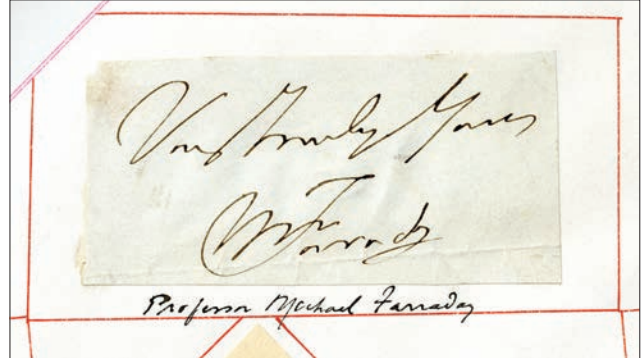 Very Truly Yours
M Faraday
Professor Michael Farraday